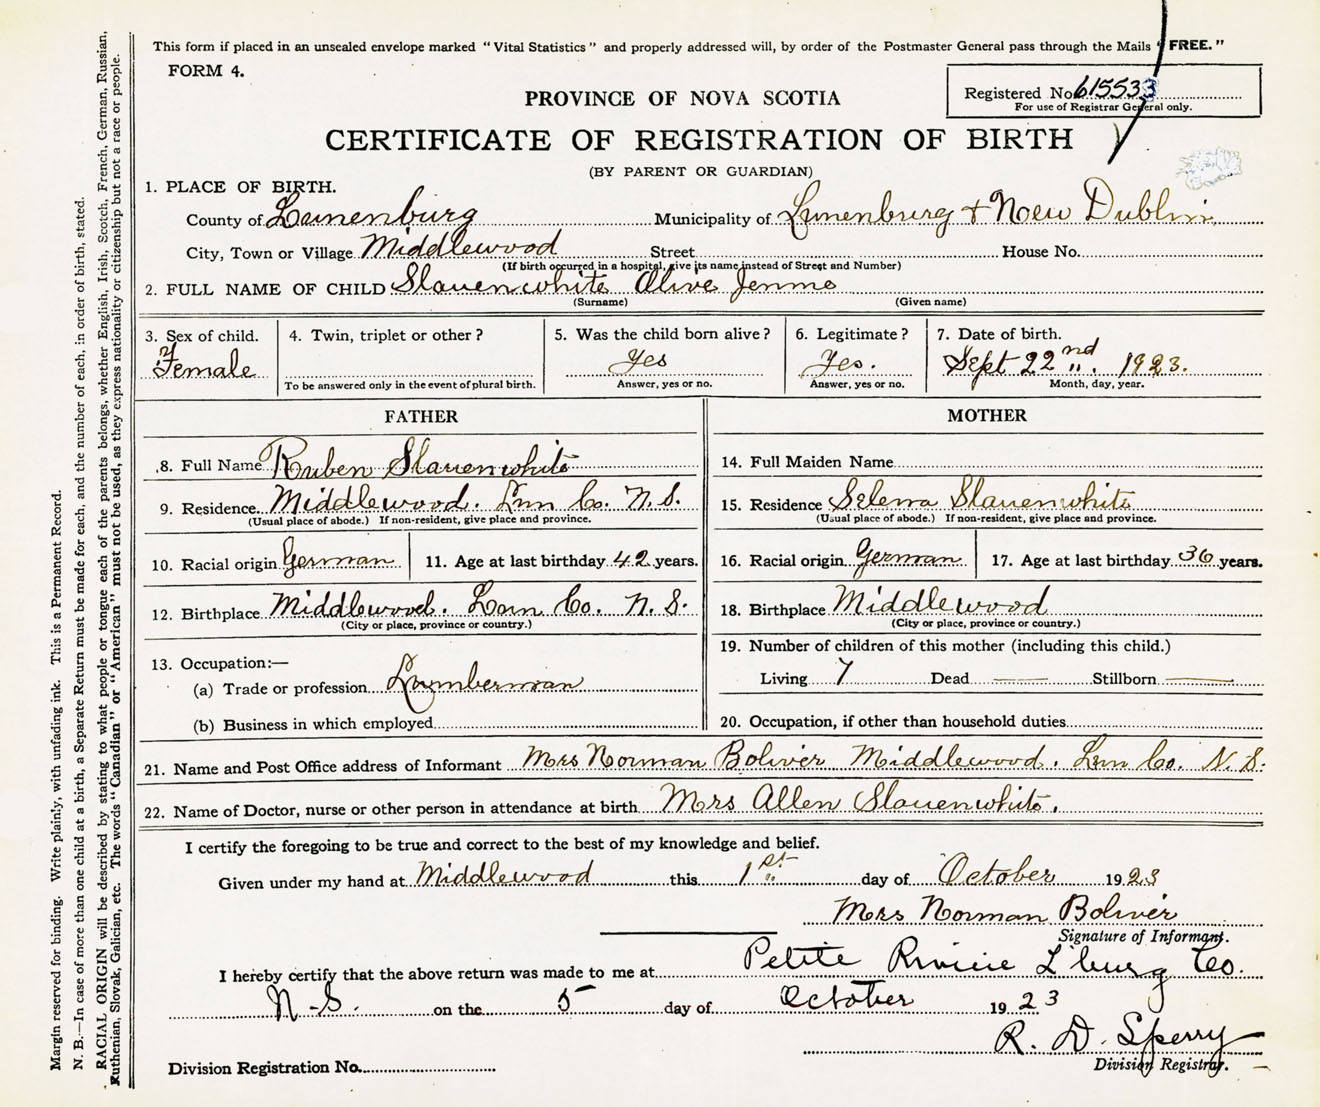 This form if placed in an unsealed envelope marked "Vital Statistics" and properly addressed will, by order of the Postmaster General pass through the Mails "FREE."
FORM 4.
Registered No. 615533
For use of Registrar General only.
PROVINCE OF NOVA SCOTIA
CERTIFICATE OF REGISTRATION OF BIRTH
(BY PARENT OR GUARDIAN)
1. PLACE OF BIRTH.
County of Lunenburg Municipality of Lunenburg & New Dublin
City, Town or Village Middlewood Street House No.
(If birth occurred in a hospital, give its name instead of Street and Number)
2. FULL NAME OF CHILD Slauenwhite Olive Jenme
(Surname) (Given name)
3. Sex of child. 4. Twin, triplet or other? 5. Was the child born alive? 6. Legitimate? 7. Date of birth.
Female Yes Yes. Sept 22nd. 1923.
To be answered only in the event of plural birth. Answer, yes or no. Answer, yes or no. Month, day, year.
FATHER MOTHER
8. Full Name Ruben Slauenwhite 14. Full Maiden Name
9. Residence Middlewood. Lun Co. N.S. 15. Residence Selena Slauenwhite
(Usual place of abode.) If non-resident, give place and province. (Usual place of abode.) If non-resident, give place and province.
10. Racial origin German 11. Age at last birthday 42 years. 16. Racial origin German 17. Age at last birthday 36 years.
12. Birthplace Middlewood. Lun Co. N.S. 18. Birthplace Middlewood
(City or place, province or country.) (City or place, province or country.)
13. Occupation:— 19. Number of children of this mother (including this child.)
(a) Trade or profession Lumberman Living 7 Dead — Stillborn —
(b) Business in which employed 20. Occupation, if other than household duties
21. Name and Post Office address of Informant Mrs Norman Boliver Middlewood. Lun Co. N.S.
22. Name of Doctor, nurse or other person in attendance at birth Mrs Allen Slauenwhite.
I certify the foregoing to be true and correct to the best of my knowledge and belief.
Given under my hand at Middlewood this 1st day of October 1923
Mrs Norman Boliver
Signature of Informant.
I hereby certify that the above return was made to me at Petite Riviere L'burg Co.
N.S. on the 5 day of October 1923
R. D. Sperry
Division Registration No. Division Registrar.
Margin reserved for binding. Write plainly, with unfading ink. This is a Permanent Record.
N. B.—In case of more than one child at a birth, a Separate Return must be made for each, and the number of each, in order of birth, stated.
RACIAL ORIGIN will be described by stating to what people or tongue each of the parents belongs, whether English, Irish, Scotch, French, German, Russian,
Ruthenian, Slovak, Galician, etc. The words "Canadian" or "American" must not be used, as they express nationality or citizenship but not a race or people.